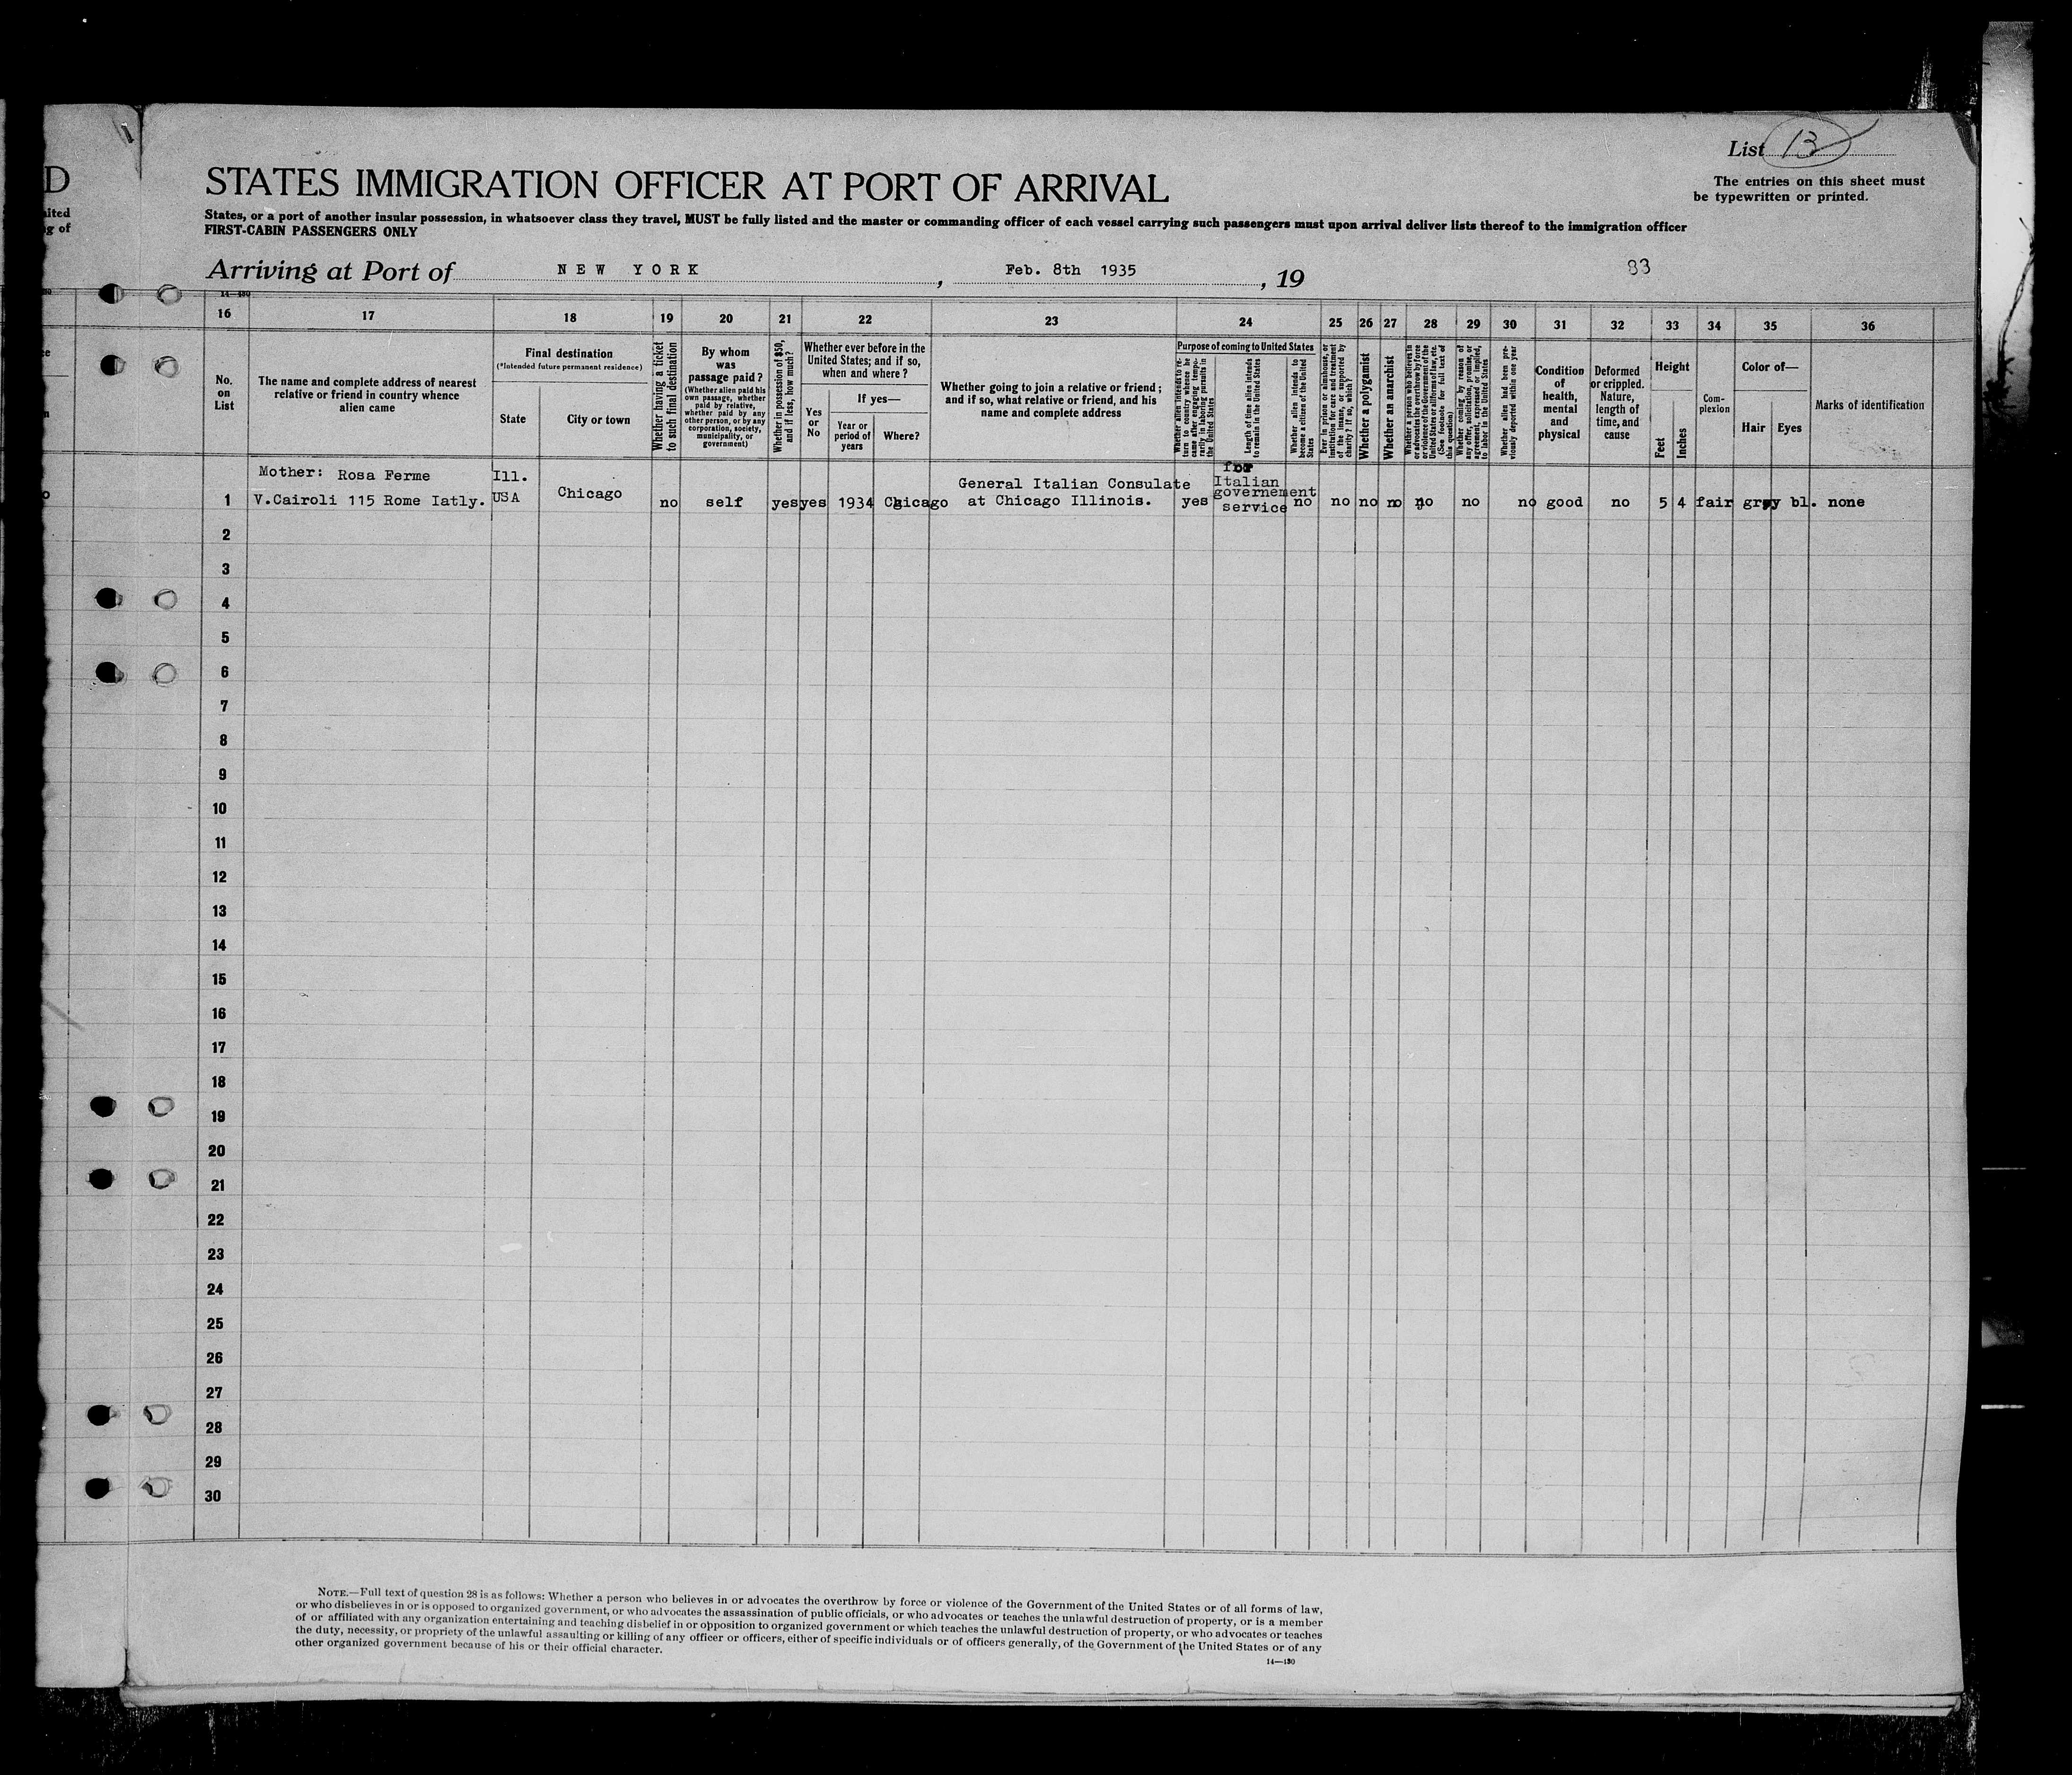 List 13
The entries on this sheet must
be typewritten or printed.
D
STATES IMMIGRATION OFFICER AT PORT OF ARRIVAL
ited
g of
States, or a port of another insular possession, in whatsoever class they travel, MUST be fully listed and the master or commanding officer of each vessel carrying such passengers must upon arrival deliver lists thereof to the immigration officer
FIRST-CABIN PASSENGERS ONLY
Arriving at Port of NEW YORK, Feb. 8th 1935, 19
93
14—430
16 17 18 19 20 21 22 23 24 25 26 27 28 29 30 31 32 33 34 35 36
No.
on
List
The name and complete address of nearest
relative or friend in country whence
alien came
Final destination
(*Intended future permanent residence)
State
City or town
Whether having a ticket
to such final destination
By whom
was
passage paid?
(Whether alien paid his
own passage, whether
paid by relative,
whether paid by any
other person, or by any
corporation, society,
municipality, or
government)
Whether in possession of $50,
and if less, how much?
Whether ever before in the
United States; and if so,
when and where?
Yes
or
No
If yes—
Year or
period of
years
Where?
Whether going to join a relative or friend;
and if so, what relative or friend, and his
name and complete address
Purpose of coming to United States
Whether alien intends to re-
turn to country whence he
came after engaging tempo-
rarily in laboring pursuits in
the United States
Length of time alien intends
to remain in the United States
Whether alien intends to
become a citizen of the United
States
Ever in prison or almshouse, or
institution for care and treatment
of the insane, or supported by
charity? If so, which?
Whether a polygamist
Whether an anarchist
Whether a person who believes in
or advocates the overthrow by force
or violence of the Government of the
United States or all forms of law, etc.
(See footnote for full text of
this question)
Whether coming by reason of
any offer, solicitation, promise, or
agreement, expressed or implied,
to labor in the United States
Whether alien had been pre-
viously deported within one year
Condition
of
health,
mental
and
physical
Deformed
or crippled.
Nature,
length of
time, and
cause
Height
Feet
Inches
Com-
plexion
Color of—
Hair
Eyes
Marks of identification
Mother: Rosa Ferme
V.Cairoli 115 Rome Iatly.
Ill.
USA
Chicago
no
self
yes
yes
1934
Chicago
General Italian Consulate
at Chicago Illinois.
yes
for
Italian
governement
service
no
no
no
no
no
no
no
good
no
5
4
fair
gray
bl.
none
1
2
3
4
5
6
7
8
9
10
11
12
13
14
15
16
17
18
19
20
21
22
23
24
25
26
27
28
29
30
NOTE.—Full text of question 28 is as follows: Whether a person who believes in or advocates the overthrow by force or violence of the Government of the United States or of all forms of law,
or who disbelieves in or is opposed to organized government, or who advocates the assassination of public officials, or who advocates or teaches the unlawful destruction of property, or is a member
of or affiliated with any organization entertaining and teaching disbelief in or opposition to organized government or which teaches the unlawful destruction of property, or who advocates or teaches
the duty, necessity, or propriety of the unlawful assaulting or killing of any officer or officers, either of specific individuals or of officers generally, of the Government of the United States or of any
other organized government because of his or their official character.
14—430